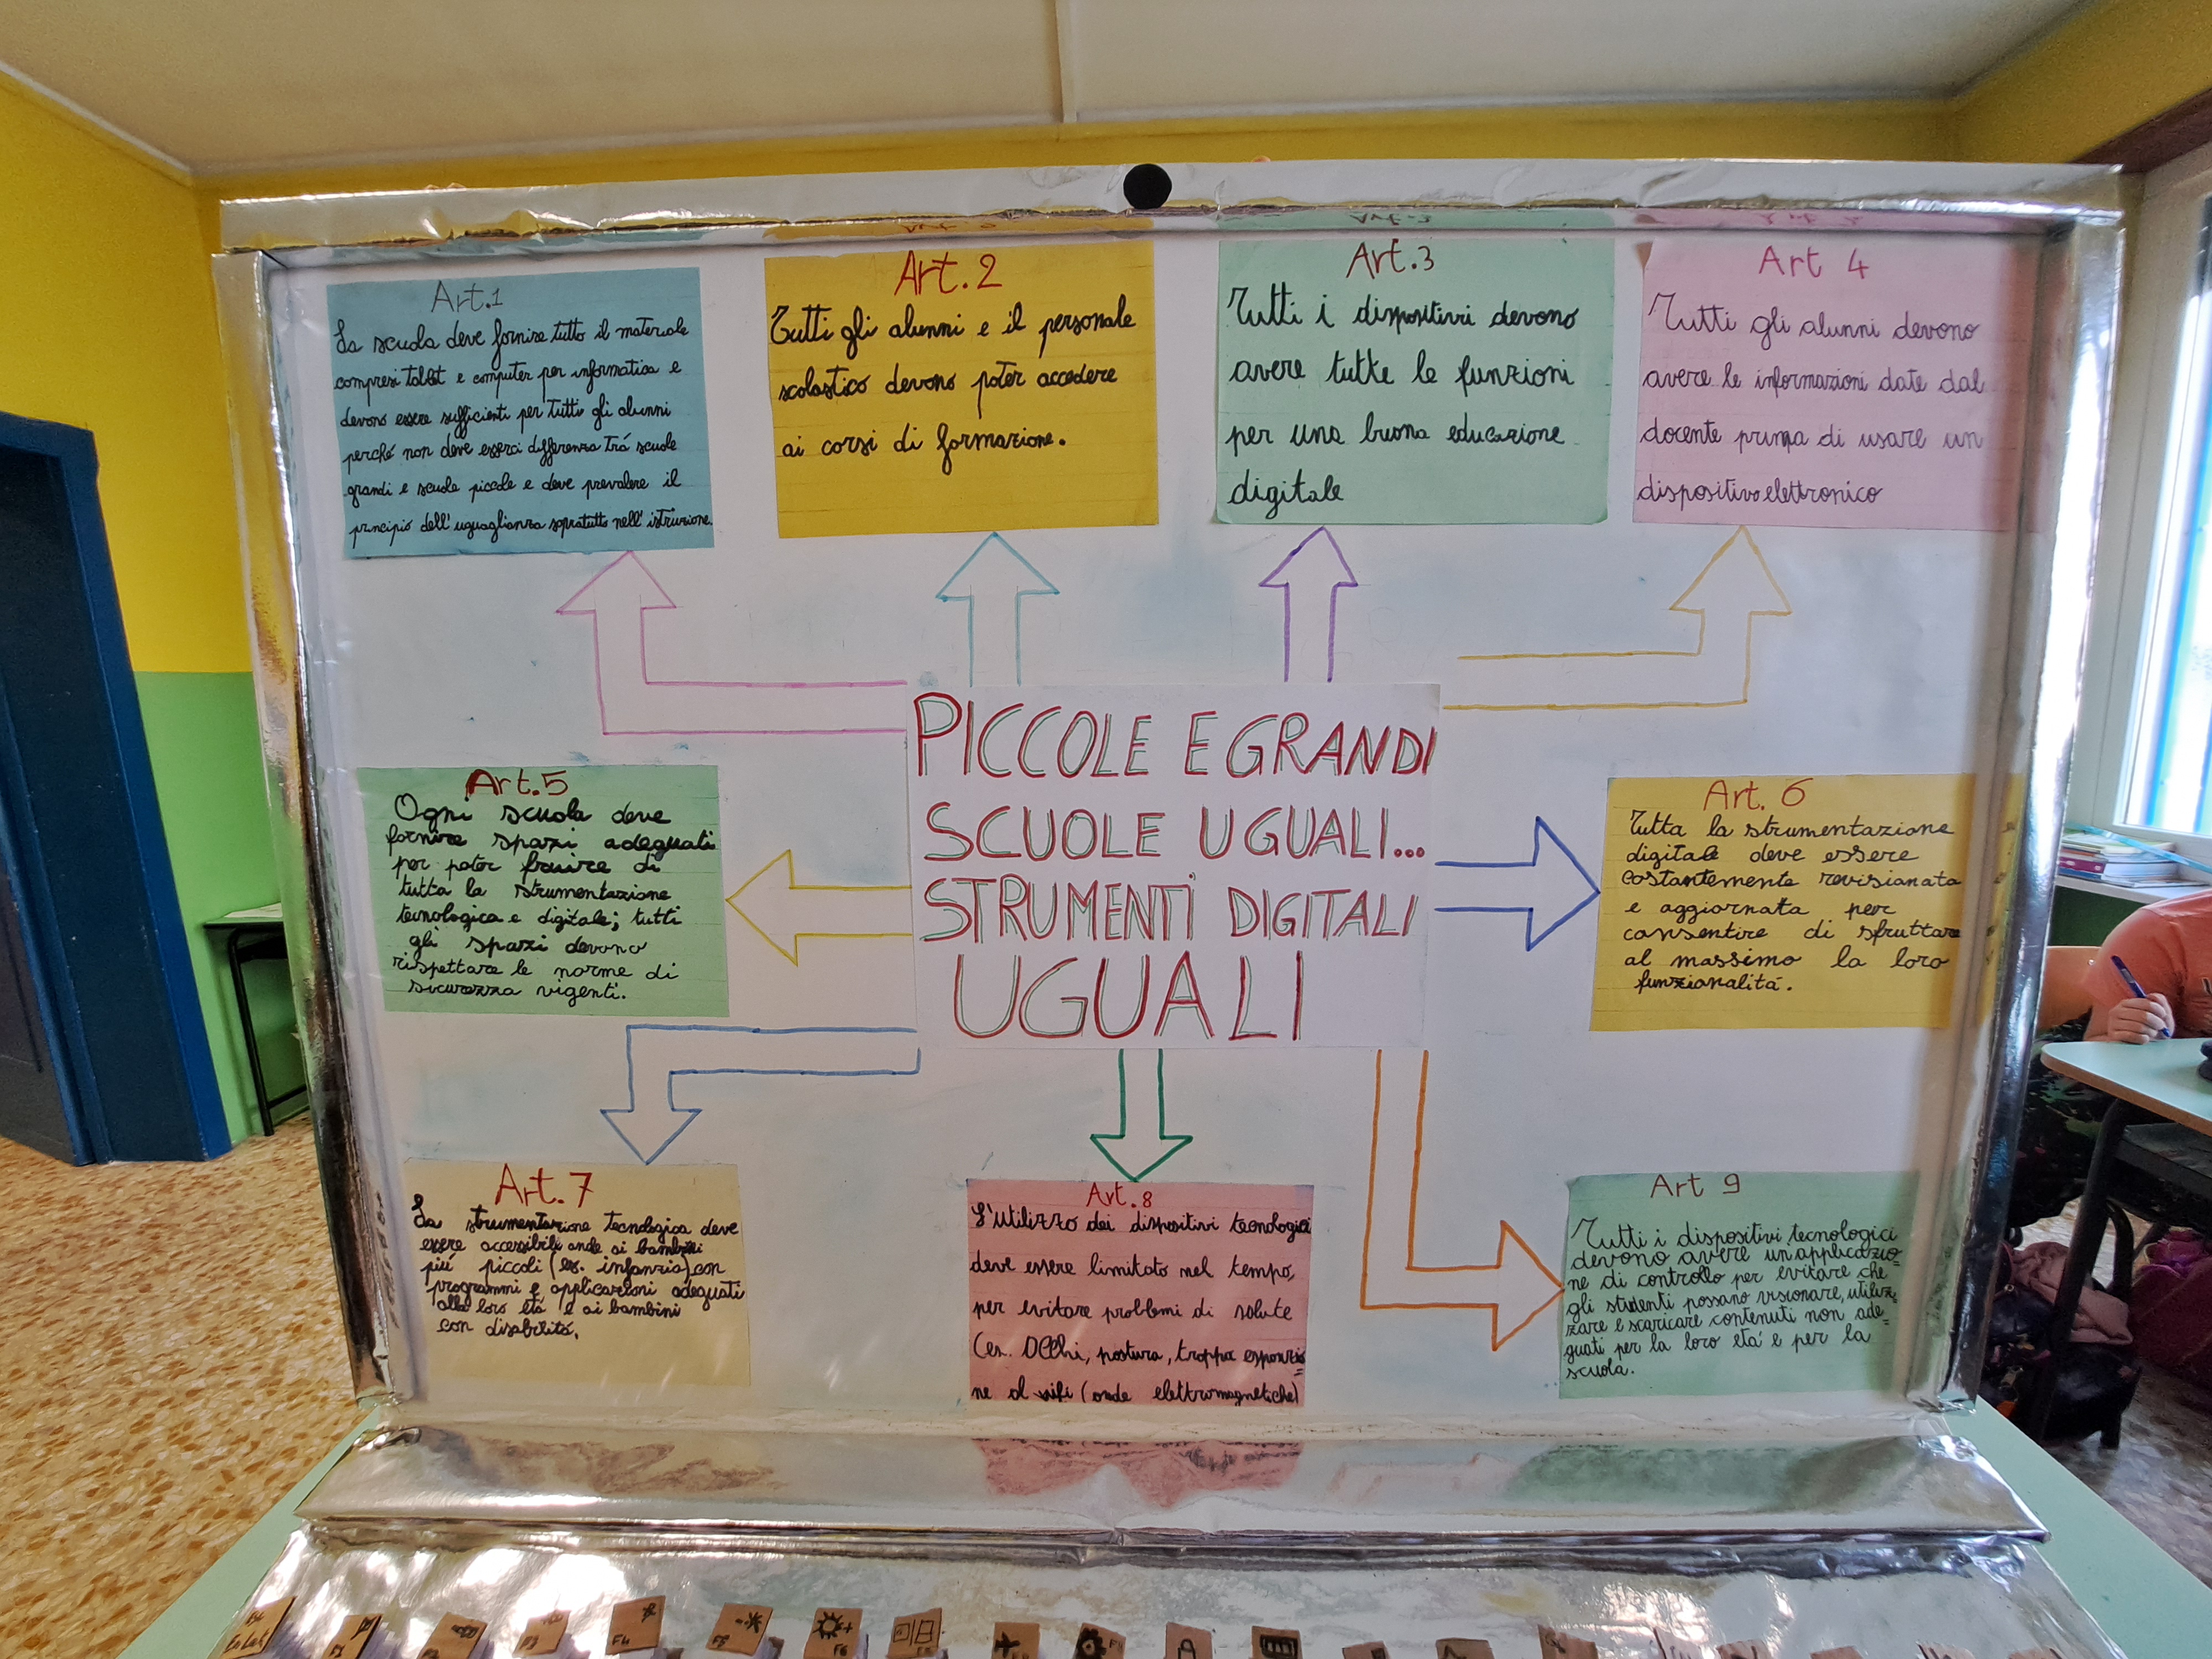 Art.1
La scuola deve fornire tutto il materiale
compresi tablet e computer per informatica e
devono essere sufficienti per tutti gli alunni
perché non deve esserci differenza trá scuole
grandi e scuole piccole e deve prevalere il
principio dell'uguaglianza sopratutto nell'istruzione.
Art.2
Tutti gli alunni e il personale
scolastico devono poter accedere
ai corsi di formazione.
Art.3
Tutti i dispositivi devono
avere tutte le funzioni
per una buona educazione
digitale
Art 4
Tutti gli alunni devono
avere le informazioni date dal
docente prima di usare un
dispositivo elettronico
PICCOLE E GRANDI
SCUOLE UGUALI...
STRUMENTI DIGITALI
UGUALI
Art.5
Ogni scuola deve
fornire spazi adeguati
per poter fruire di
tutta la strumentazione
tecnologica e digitale; tutti
gli spazi devono
rispettare le norme di
sicurezza vigenti.
Art. 6
Tutta la strumentazione
digitale deve essere
costantemente revisionata
e aggiornata per
consentire di sfruttare
al massimo la loro
funzionalitá.
Art.7
La strumentazione tecnologica deve
essere accessibili anche ai bambini
piú piccoli (es. infanzia) con
programmi e applicazioni adeguati
alla loro etá e ai bambini
con disabilitá.
Art.8
L'utilizzo dei dispositivi tecnologici
deve essere limitato nel tempo,
per evitare problemi di salute
(es. Occhi, postura, troppa esposizio=
ne al wifi (onde elettromagnetiche)
Art 9
Tutti i dispositivi tecnologici
devono avere un'applicazio=
ne di controllo per evitare che
gli studenti possano visionare, utiliz=
zare e scaricare contenuti non ade=
guati per la loro etá e per la
scuola.
F3
F4
F5
F6